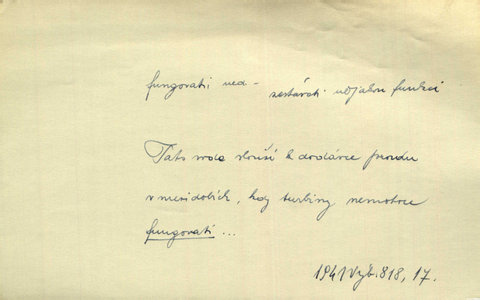 fungovati ned - zastávati nějakou funkci
Tato voda slouží k dodávce proudu
v mezidobích, kdy turbiny nemohou
fungovati ...
1941 Výb. 818, 17.